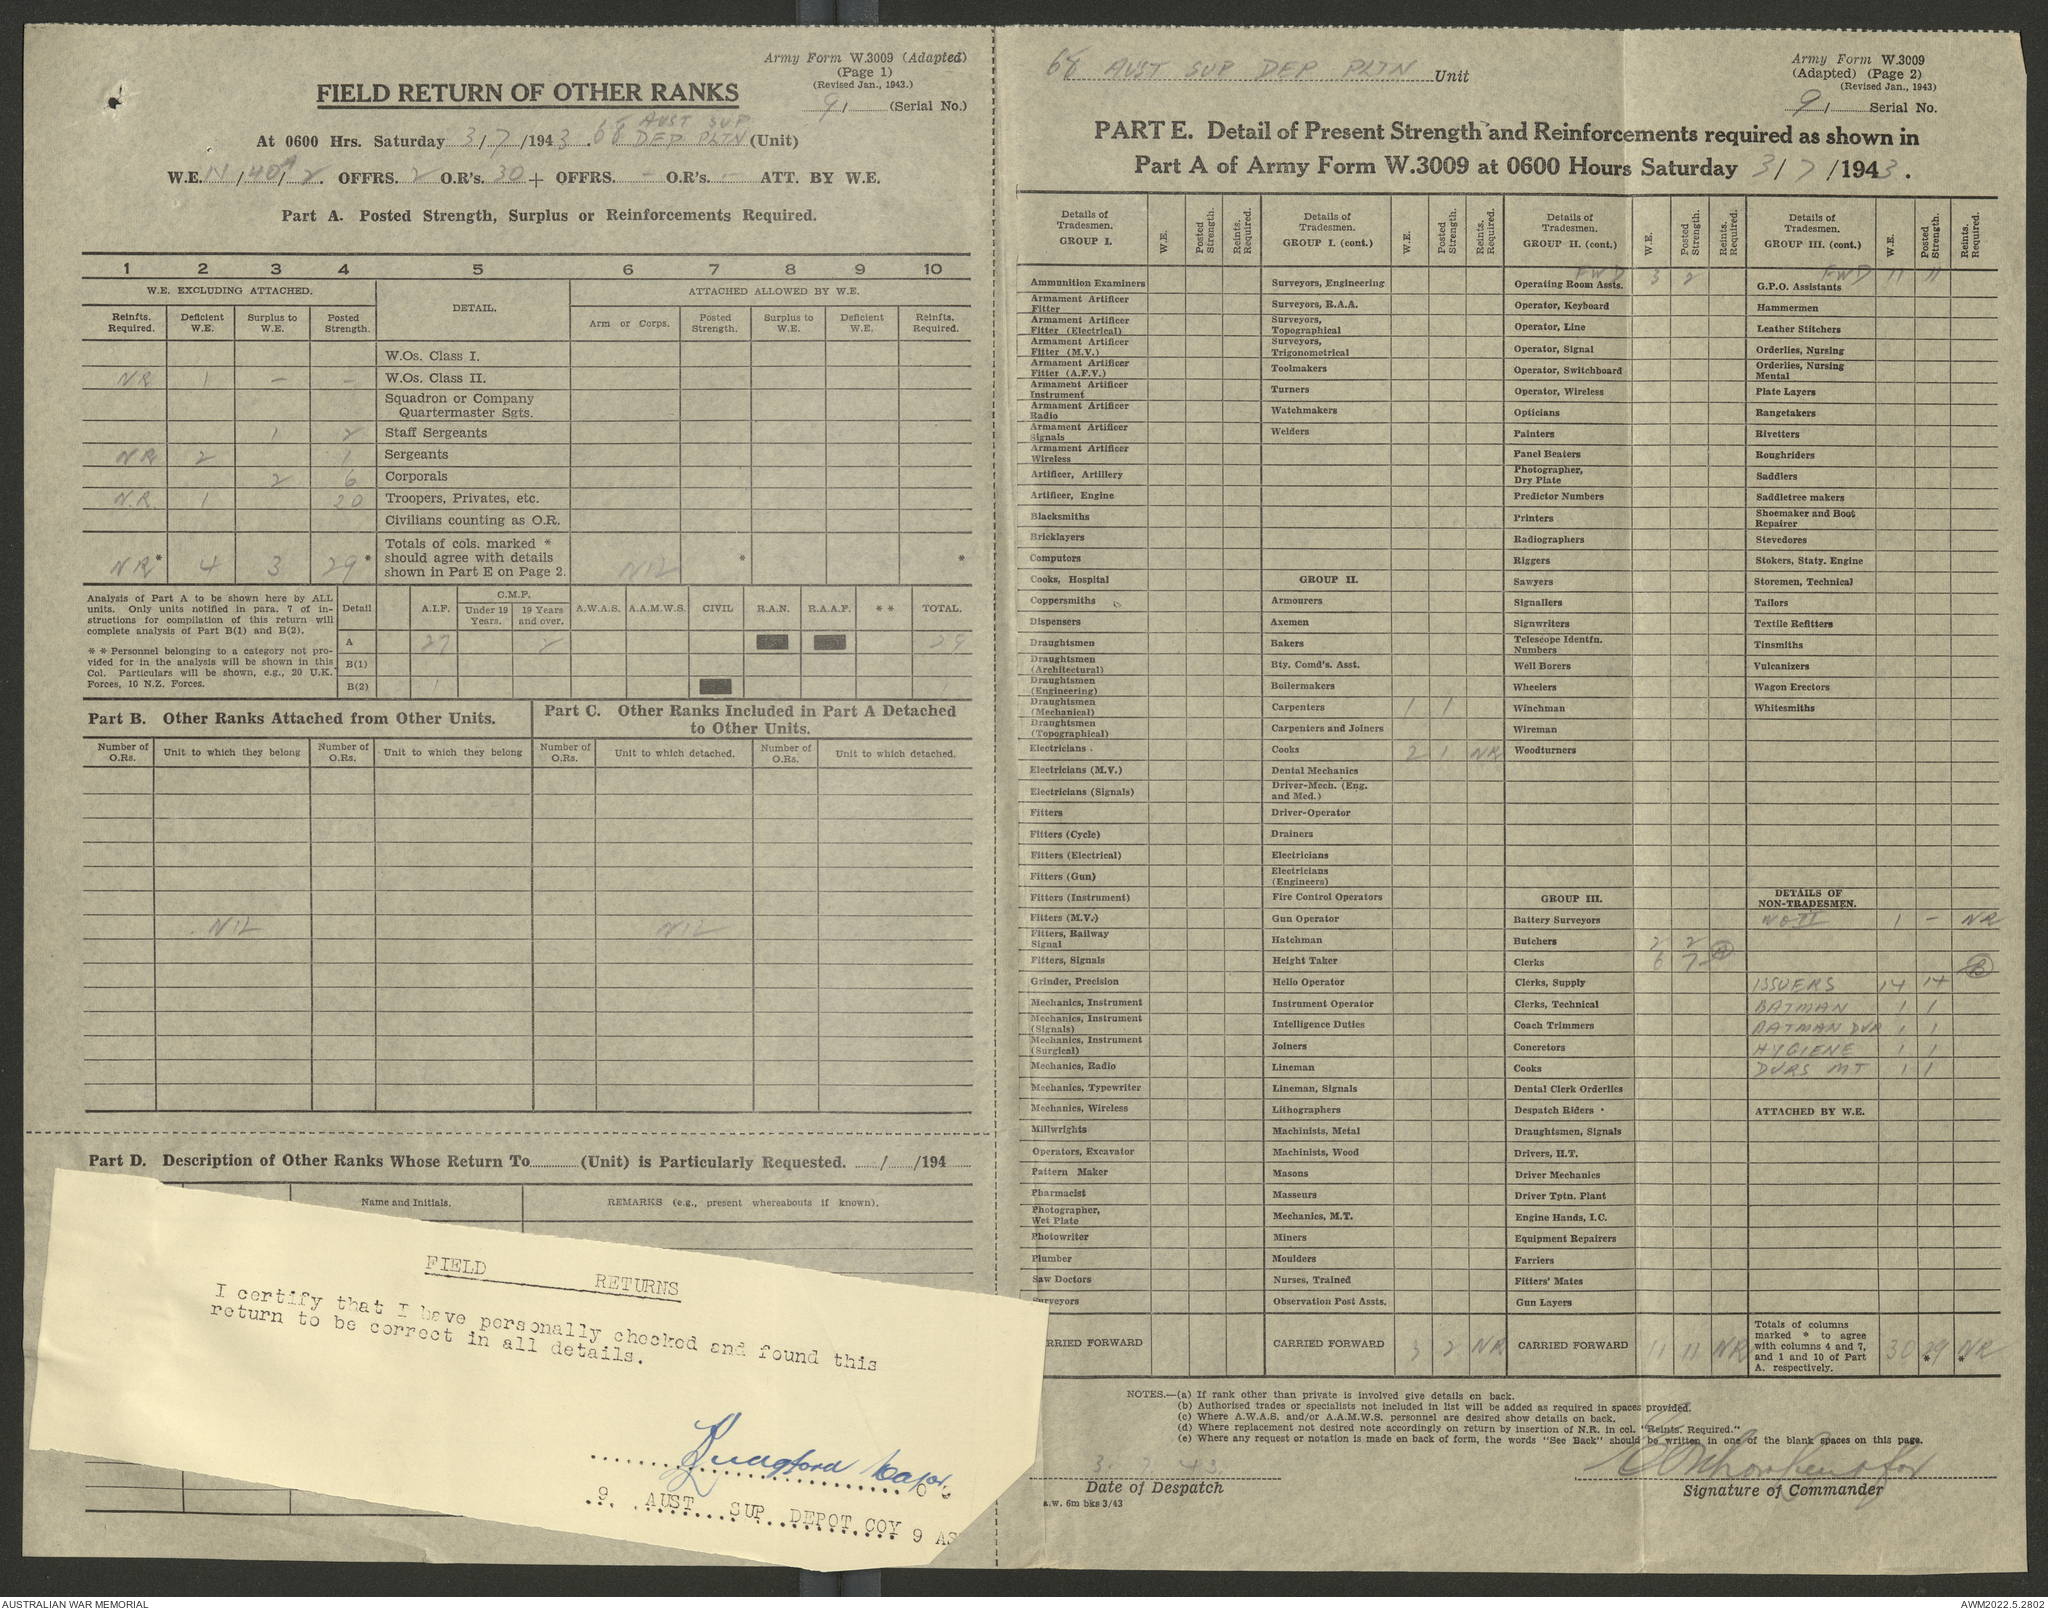 Army Form W.3009 (Adapted)
(Page 1)
(Revised Jan., 1943.)
FIELD RETURN OF OTHER RANKS
91 (Serial No.)
At 0600 Hrs. Saturday 3/7/1943. 68 AUST SUP DEP PLTN (Unit)
W.E. OFFRS. 2 O.R's. 30 + OFFRS. - O.R's. - ATT. BY W.E.
Part A. Posted Strength, Surplus or Reinforcements Required.
1 2 3 4 5 6 7 8 9 10
W.E. EXCLUDING ATTACHED. DETAIL. ATTACHED ALLOWED BY W.E.
Reinfts. Required. Deficient W.E. Surplus to W.E. Posted Strength. Arm or Corps. Posted Strength. Surplus to W.E. Deficient W.E. Reinfts. Required.
W.Os. Class I.
NR 1 - - W.Os. Class II.
Squadron or Company Quartermaster Sgts.
1 2 Staff Sergeants
NR 2 1 Sergeants
2 6 Corporals
N.R. 1 20 Troopers, Privates, etc.
Civilians counting as O.R.
NR* 4 3 29* Totals of cols. marked * should agree with details shown in Part E on Page 2. NIL * *
Analysis of Part A to be shown here by ALL units. Only units notified in para. 7 of instructions for compilation of this return will complete analysis of Part B(1) and B(2).
* * Personnel belonging to a category not provided for in the analysis will be shown in this Col. Particulars will be shown, e.g., 20 U.K. Forces, 10 N.Z. Forces.
Detail A.I.F. C.M.F. Under 19 Years. 19 Years and over. A.W.A.S. A.A.M.W.S. CIVIL R.A.N. R.A.A.F. * * TOTAL.
A 27 2 29
B(1)
B(2) 1 1
Part B. Other Ranks Attached from Other Units.
Part C. Other Ranks Included in Part A Detached to Other Units.
Number of O.Rs. Unit to which they belong Number of O.Rs. Unit to which they belong Number of O.Rs. Unit to which detached. Number of O.Rs. Unit to which detached.
NIL NIL
Part D. Description of Other Ranks Whose Return To (Unit) is Particularly Requested. / /194
Name and Initials. REMARKS (e.g., present whereabouts if known).
FIELD RETURNS
I certify that I have personally checked and found this
return to be correct in all details.
Major
O C
9 AUST SUP DEPOT COY 9 AS
68 AUST SUP DEP PLTN Unit
Army Form W.3009
(Adapted) (Page 2)
(Revised Jan., 1943)
91 Serial No.
PART E. Detail of Present Strength and Reinforcements required as shown in
Part A of Army Form W.3009 at 0600 Hours Saturday 3/7/1943.
Details of Tradesmen. GROUP I. W.E. Posted Strength. Reints. Required.
Ammunition Examiners
Armament Artificer Fitter
Armament Artificer Fitter (Electrical)
Armament Artificer Fitter (M.V.)
Armament Artificer Fitter (A.F.V.)
Armament Artificer Instrument
Armament Artificer Radio
Armament Artificer Signals
Armament Artificer Wireless
Artificer, Artillery
Artificer, Engine
Blacksmiths
Bricklayers
Computors
Cooks, Hospital
Coppersmiths
Dispensers
Draughtsmen
Draughtsmen (Architectural)
Draughtsmen (Engineering)
Draughtsmen (Mechanical)
Draughtsmen (Topographical)
Electricians
Electricians (M.V.)
Electricians (Signals)
Fitters
Fitters (Cycle)
Fitters (Electrical)
Fitters (Gun)
Fitters (Instrument)
Fitters (M.V.)
Fitters, Railway Signal
Fitters, Signals
Grinder, Precision
Mechanics, Instrument
Mechanics, Instrument (Signals)
Mechanics, Instrument (Surgical)
Mechanics, Radio
Mechanics, Typewriter
Mechanics, Wireless
Millwrights
Operators, Excavator
Pattern Maker
Pharmacist
Photographer, Wet Plate
Photowriter
Plumber
Saw Doctors
Surveyors
CARRIED FORWARD
Details of Tradesmen. GROUP I. (cont.) W.E. Posted Strength. Reints. Required.
Surveyors, Engineering
Surveyors, R.A.A.
Surveyors, Topographical
Surveyors, Trigonometrical
Toolmakers
Turners
Watchmakers
Welders
GROUP II.
Armourers
Axemen
Bakers
Bty. Comd's. Asst.
Boilermakers
Carpenters 1 1
Carpenters and Joiners
Cooks 2 1 NR
Dental Mechanics
Driver-Mech. (Eng. and Med.)
Driver-Operator
Drainers
Electricians
Electricians (Engineers)
Fire Control Operators
Gun Operator
Hatchman
Height Taker
Hello Operator
Instrument Operator
Intelligence Duties
Joiners
Lineman
Lineman, Signals
Lithographers
Machinists, Metal
Machinists, Wood
Masons
Masseurs
Mechanics, M.T.
Miners
Moulders
Nurses, Trained
Observation Post Assts.
CARRIED FORWARD 3 2 NR
Details of Tradesmen. GROUP II. (cont.) W.E. Posted Strength. Reints. Required.
FWD 3 2
Operating Room Assts.
Operator, Keyboard
Operator, Line
Operator, Signal
Operator, Switchboard
Operator, Wireless
Opticians
Painters
Panel Beaters
Photographer, Dry Plate
Predictor Numbers
Printers
Radiographers
Riggers
Sawyers
Signallers
Signwriters
Telescope Identfn. Numbers
Well Borers
Wheelers
Winchman
Wireman
Woodturners
GROUP III.
Battery Surveyors
Butchers 2 2
Clerks 6 7 (A)
Clerks, Supply
Clerks, Technical
Coach Trimmers
Concretors
Cooks
Dental Clerk Orderlies
Despatch Riders
Draughtsmen, Signals
Drivers, H.T.
Driver Mechanics
Driver Tptn. Plant
Engine Hands, I.C.
Equipment Repairers
Farriers
Fitters' Mates
Gun Layers
CARRIED FORWARD 11 11 NR
Details of Tradesmen. GROUP III. (cont.) W.E. Posted Strength. Reints. Required.
FWD 11 11
G.P.O. Assistants
Hammermen
Leather Stitchers
Orderlies, Nursing
Orderlies, Nursing Mental
Plate Layers
Rangetakers
Rivetters
Roughriders
Saddlers
Saddletree makers
Shoemaker and Boot Repairer
Stevedores
Stokers, Staty. Engine
Storemen, Technical
Tailors
Textile Refitters
Tinsmiths
Vulcanizers
Wagon Erectors
Whitesmiths
DETAILS OF NON-TRADESMEN.
WO II 1 - NR
(B)
ISSUERS 14 14
BATMAN 1 1
BATMAN DVR 1 1
HYGIENE 1 1
DVRS MT 1 1
ATTACHED BY W.E.
Totals of columns marked * to agree with columns 4 and 7, and 1 and 10 of Part A. respectively. 30 29* *NR
NOTES.—(a) If rank other than private is involved give details on back.
(b) Authorised trades or specialists not included in list will be added as required in spaces provided.
(c) Where A.W.A.S. and/or A.A.M.W.S. personnel are desired show details on back.
(d) Where replacement not desired note accordingly on return by insertion of N.R. in col. "Reints. Required."
(e) Where any request or notation is made on back of form, the words "See Back" should be written in one of the blank spaces on this page.
3. 7. 43.
Date of Despatch
Signature of Commander
a.w. 6m bks 3/43
AUSTRALIAN WAR MEMORIAL
AWM2022.5.2802